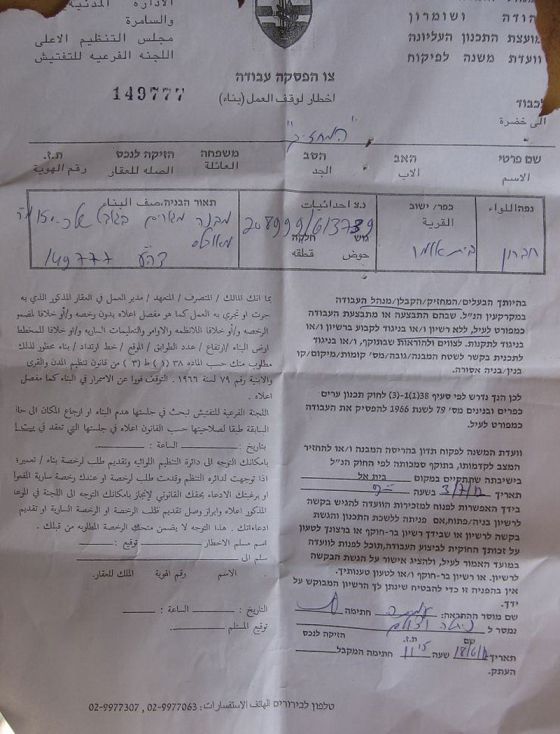 الادارة المدنية
والسامرة
مجلس التنظيم الاعلى
اللجنة الفرعية للتفتيش
יהודה ושומרון
מועצת התכנון העליונה
וועדת משנה לפיקוח
צו הפסקה עבודה
اخطار لوقف العمل (بناء)
149777
לכבוד
الى حضرة
"המחזיק"
שם פרטי האב הסב משפחה הזיקה לנכס ת.ז.
الاسم الاب الجد العائلة الصله للعقار رقم الهوية
נפה/לואء
חברון
כפר/ ישוב
القرية
בית אומר
נ.צ احداثيات
208999/613739
גוש חלקה
حوض قطعه
תאור הבניה.صف البناء
מבנה מגורים
149777
בהיותך הבעלים/המחזיק/הקבלן/מנהל העבודה
במקרקעין הנ"ל. שבהם התבצעה או מתבצעת העבודה
כמפורט לעיל, ללא רשיון ו/או בניגוד לקבוע ברשיון ו/או
בניגוד לתקנות. לצווים ולהוראות שבתוקף, ו/או בניגוד
לתכנית בקשר לשטח המבנה/גובה/מס' קומות/מיקום/קו
בנין/בניה אסורה.
לכן הנך נדרש לפי סעיף 38(1)-(3) לחוק תכנון ערים
כפרים ובנינים מס' 79 לשנת 1966 להפסיק את העבודה
כמפורט לעיל.
וועדת המשנה לפקוח תדון בהריסת המבנה ו/או להחזיר
המצב לקדמותו, בתוקף סמכותה לפי החוק הנ"ל
בישיבתה שתתקיים במקום בית אל
תאריך בשעה
בידך האפשרות לפנות למזכירות הוועדה להגיש בקשה
לרשיון בניה/פתוח,אם פניתה ללשכת התכנון והגשת
בקשה לרשיון או שבידך רשיון בר-חוקף או ברצונך לטעון
על זכותך החוקית לביצוע העבודה,תוכל לפנות לוועדה
במועד האמור לעיל, ולהציג אישור על הגשת הבקשה
לרשיון. או רשיון בר-חוקף ו/או לטעון טענותיך.
אין בהפניה זו כדי להבטיח שינתן לך הרשיון המבוקש על
ידך.
שם מוסר ההתראה: חתימה
נמסר ל
שם ת.ז. הזיקה לנכס
תאריך שעה חתימה המקבל
העתק.
بما انك المالك / المتصرف / المتعهد / مدير العمل في العقار المذكور الذي به
جرت او تجري به العمل كما هو مفصل اعلاه بدون رخصه و/أو خلافا لمضم
الرخصه و/أو خلافا للانظمه والاوامر والتعليمات الساريه و/او خلافا للمخطط
ارض البناء /ارتفاع / عدد الطوابق / الموقع / خط ارتداد / بناء محظور لذلك
مطلوب منك حسب الماده ٣٨ (١) ط (٣) من قانون تنظيم المدن والقرى
والابنية رقم ٧٩ لسنة ١٩٦٦ التوقف فورا عن الاستمرار في البناء كما مفصل
اعلاه .
اللجنة الفرعية للتفتيش تبحث في جلستها هدم البناء او ارجاع المكان الى حاا
السابقة طبقا لصلاحيتها حسب القانون اعلاه في جلستها التي تعقد في
بتاريخ: الساعة :
بامكانك التوجه الى دائرة التنظيم اللوائيه وتقديم طلب لرخصة بناء / تعمير؛
اذا توجهت لدائرة التنظيم وقدمت طلب لرخصة او عندك رخصة سارية المفعوا
او برغبتك الادعاء بحقك القانوني لإنجاز بامكانك التوجه الى اللجنة في الموعا
المذكور اعلاه وابراز وصل تقديم طلب الرخصة او الرخصة السارية او تقديم
ادعاءاتك . هذا التوجه لا يضمن منحك الرخصة المطلوبه من قبلك .
اسم مسلم الاخطار توقيع :
سلم الى
الاسم رقم الهوية المالك للعقار
التاريخ : الساعة :
توقيع المستلم
טלפון לבירורים الهاتف الاستفسارات : 02-9977063 , 02-9977307